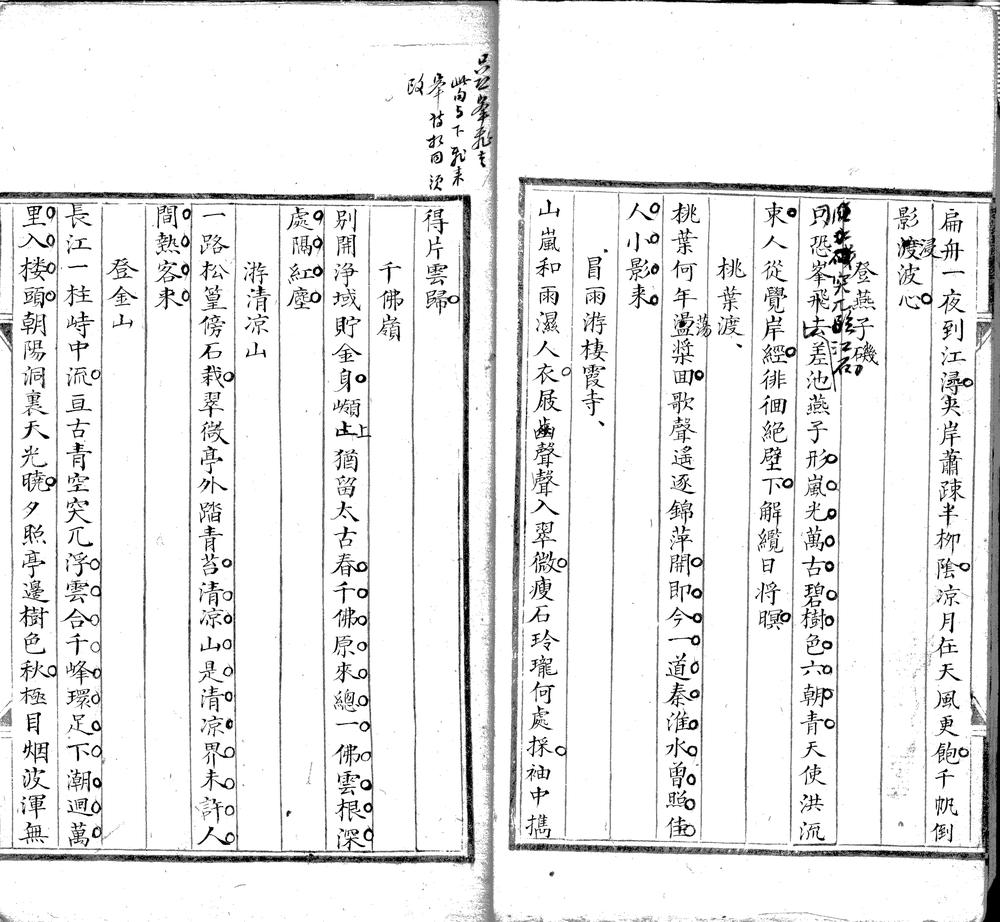 扁舟一夜到江潯夾岸蕭疎半柳陰凉月在天風更飽千帆倒
影浸波心
登燕子磯
只恐峯飛去差池燕子形嵐光萬古碧樹色六朝青天使洪流
束人從覺岸經徘徊絕壁下解纜日將暝
桃葉渡
桃葉何年盪槳回歌聲遙逐錦萍開即今一道秦淮水曾照佳
人小影来
冒雨游棲霞寺
山嵐和雨濕人衣屐齒聲聲入翠微瘦石玲瓏何處採袖中攜
只恐峯飛去
此句与下飛来
峯詩相同須
改
得片雲歸
千佛嶺
別開淨域貯金身巔上猶留太古春千佛原來總一佛雲根深
處隔紅塵
游清凉山
一路松篁傍石栽翠微亭外踏青苔清凉山是清凉界未許人
間熱客来
登金山
長江一柱峙中流亘古青空突兀浮雲合千峰環足下潮迴萬
里入楼頭朝陽洞裏天光曉夕照亭邊樹色秋極目烟波渾無